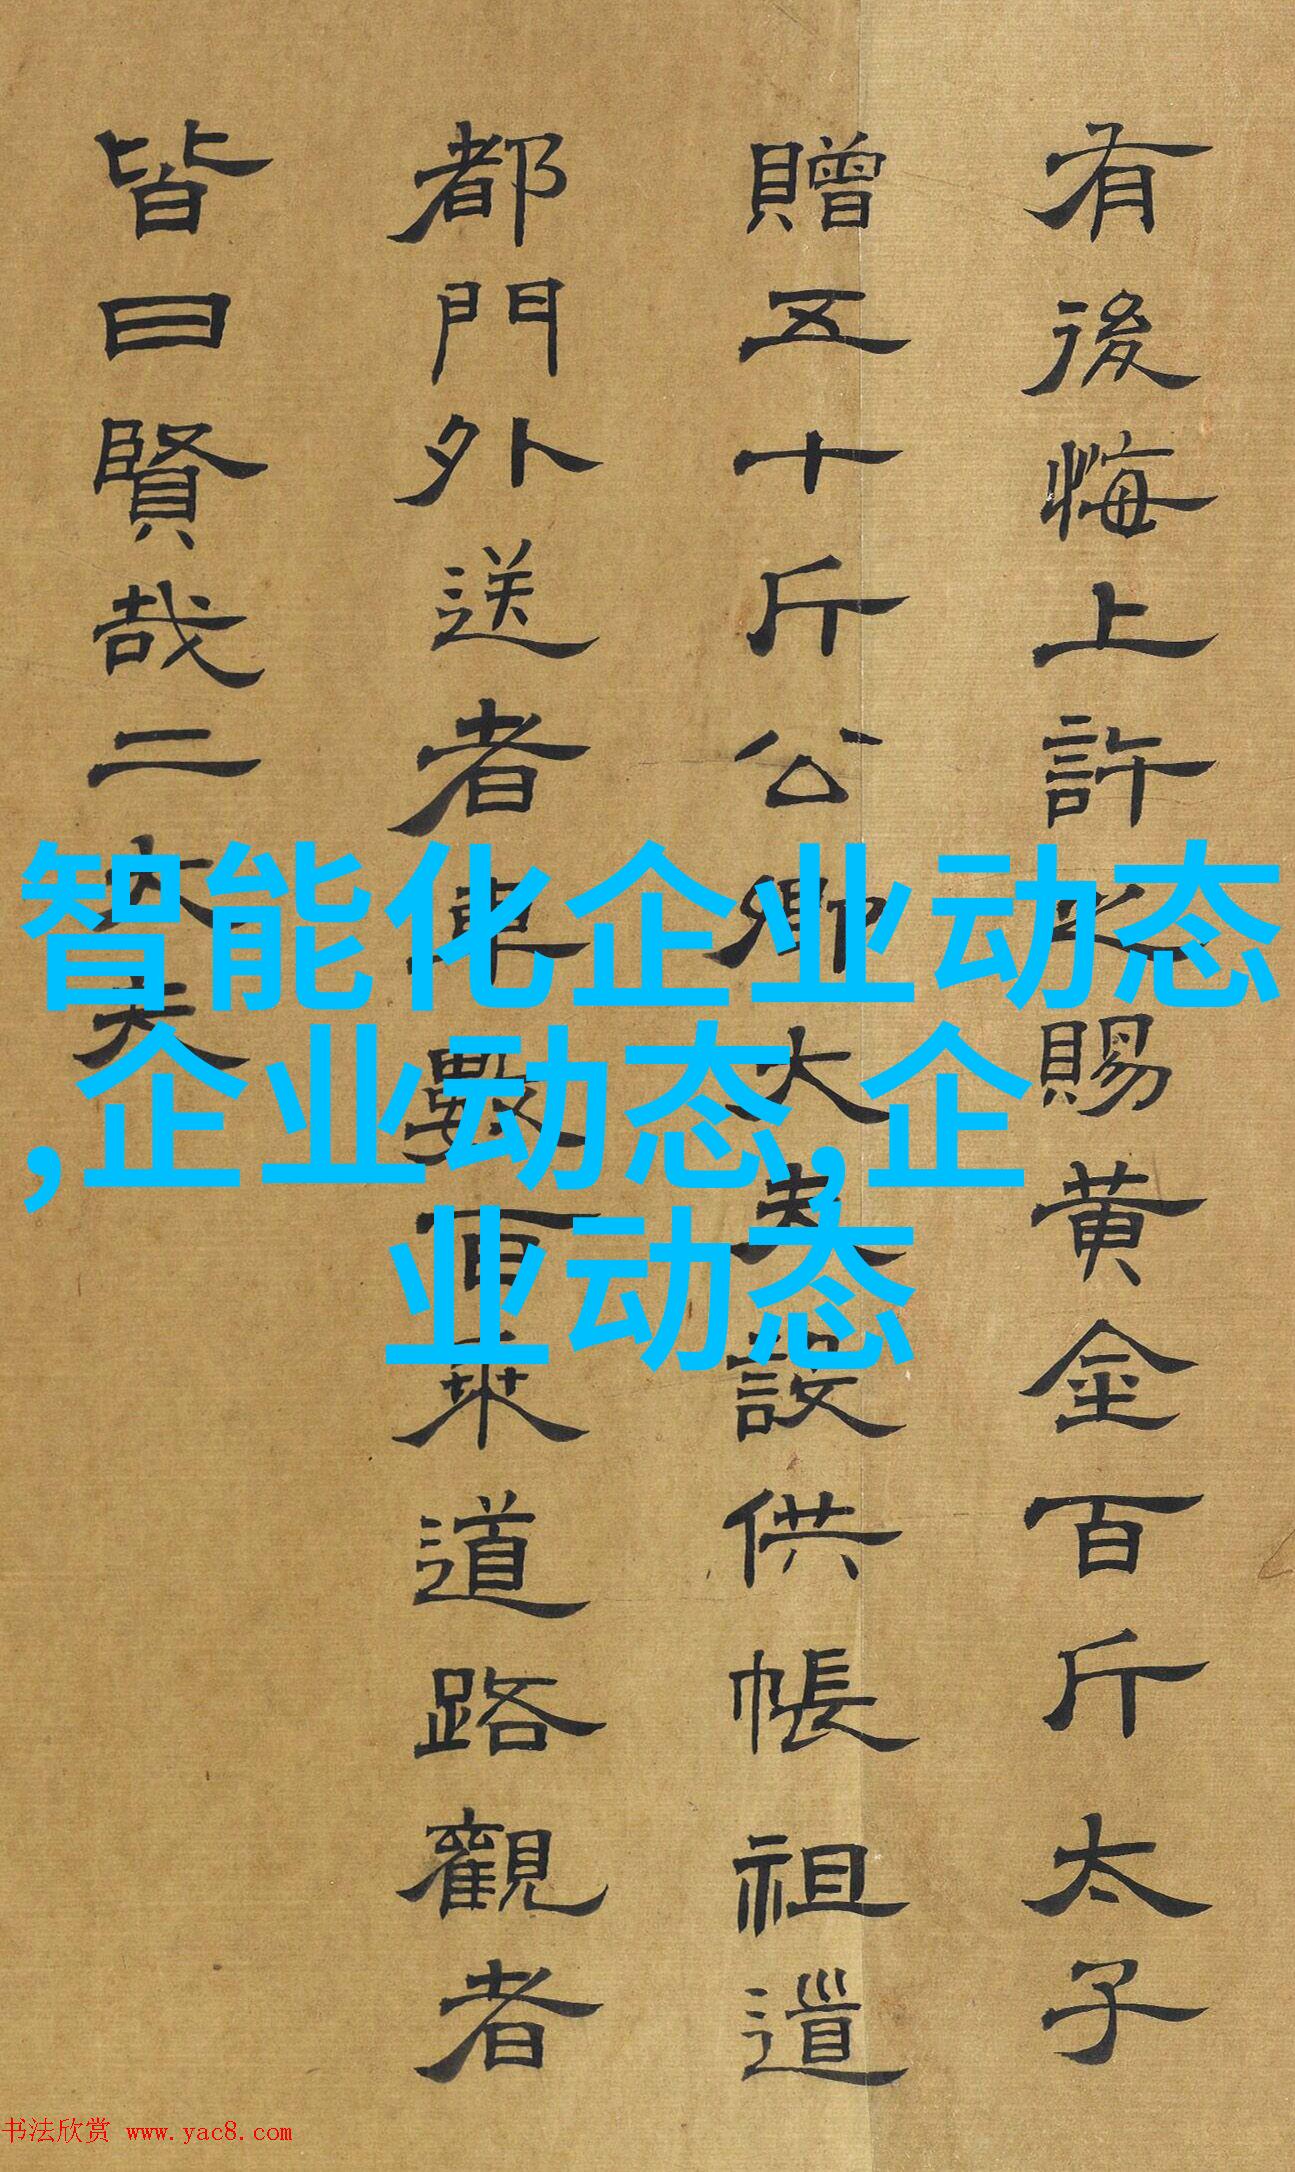 有後悔上許之賜黄金百斤太子
贈五十斤公卿大夫設供帳祖道
都門外送者車數百乘道路觀者
皆曰賢哉二大夫
智能化企业动态
,企业动态,企
业动态
书法欣赏 www.yac8.com